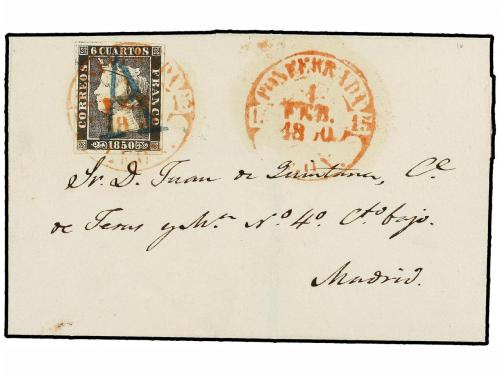 6 CUARTOS
CORREOS
FRANCO
1850
PONFERRADA
1
FEB.
1850
Sr. D. Juan de Quintana, Ce
de Feras y Mta No. 4o. Cto bajo.
Madrid.